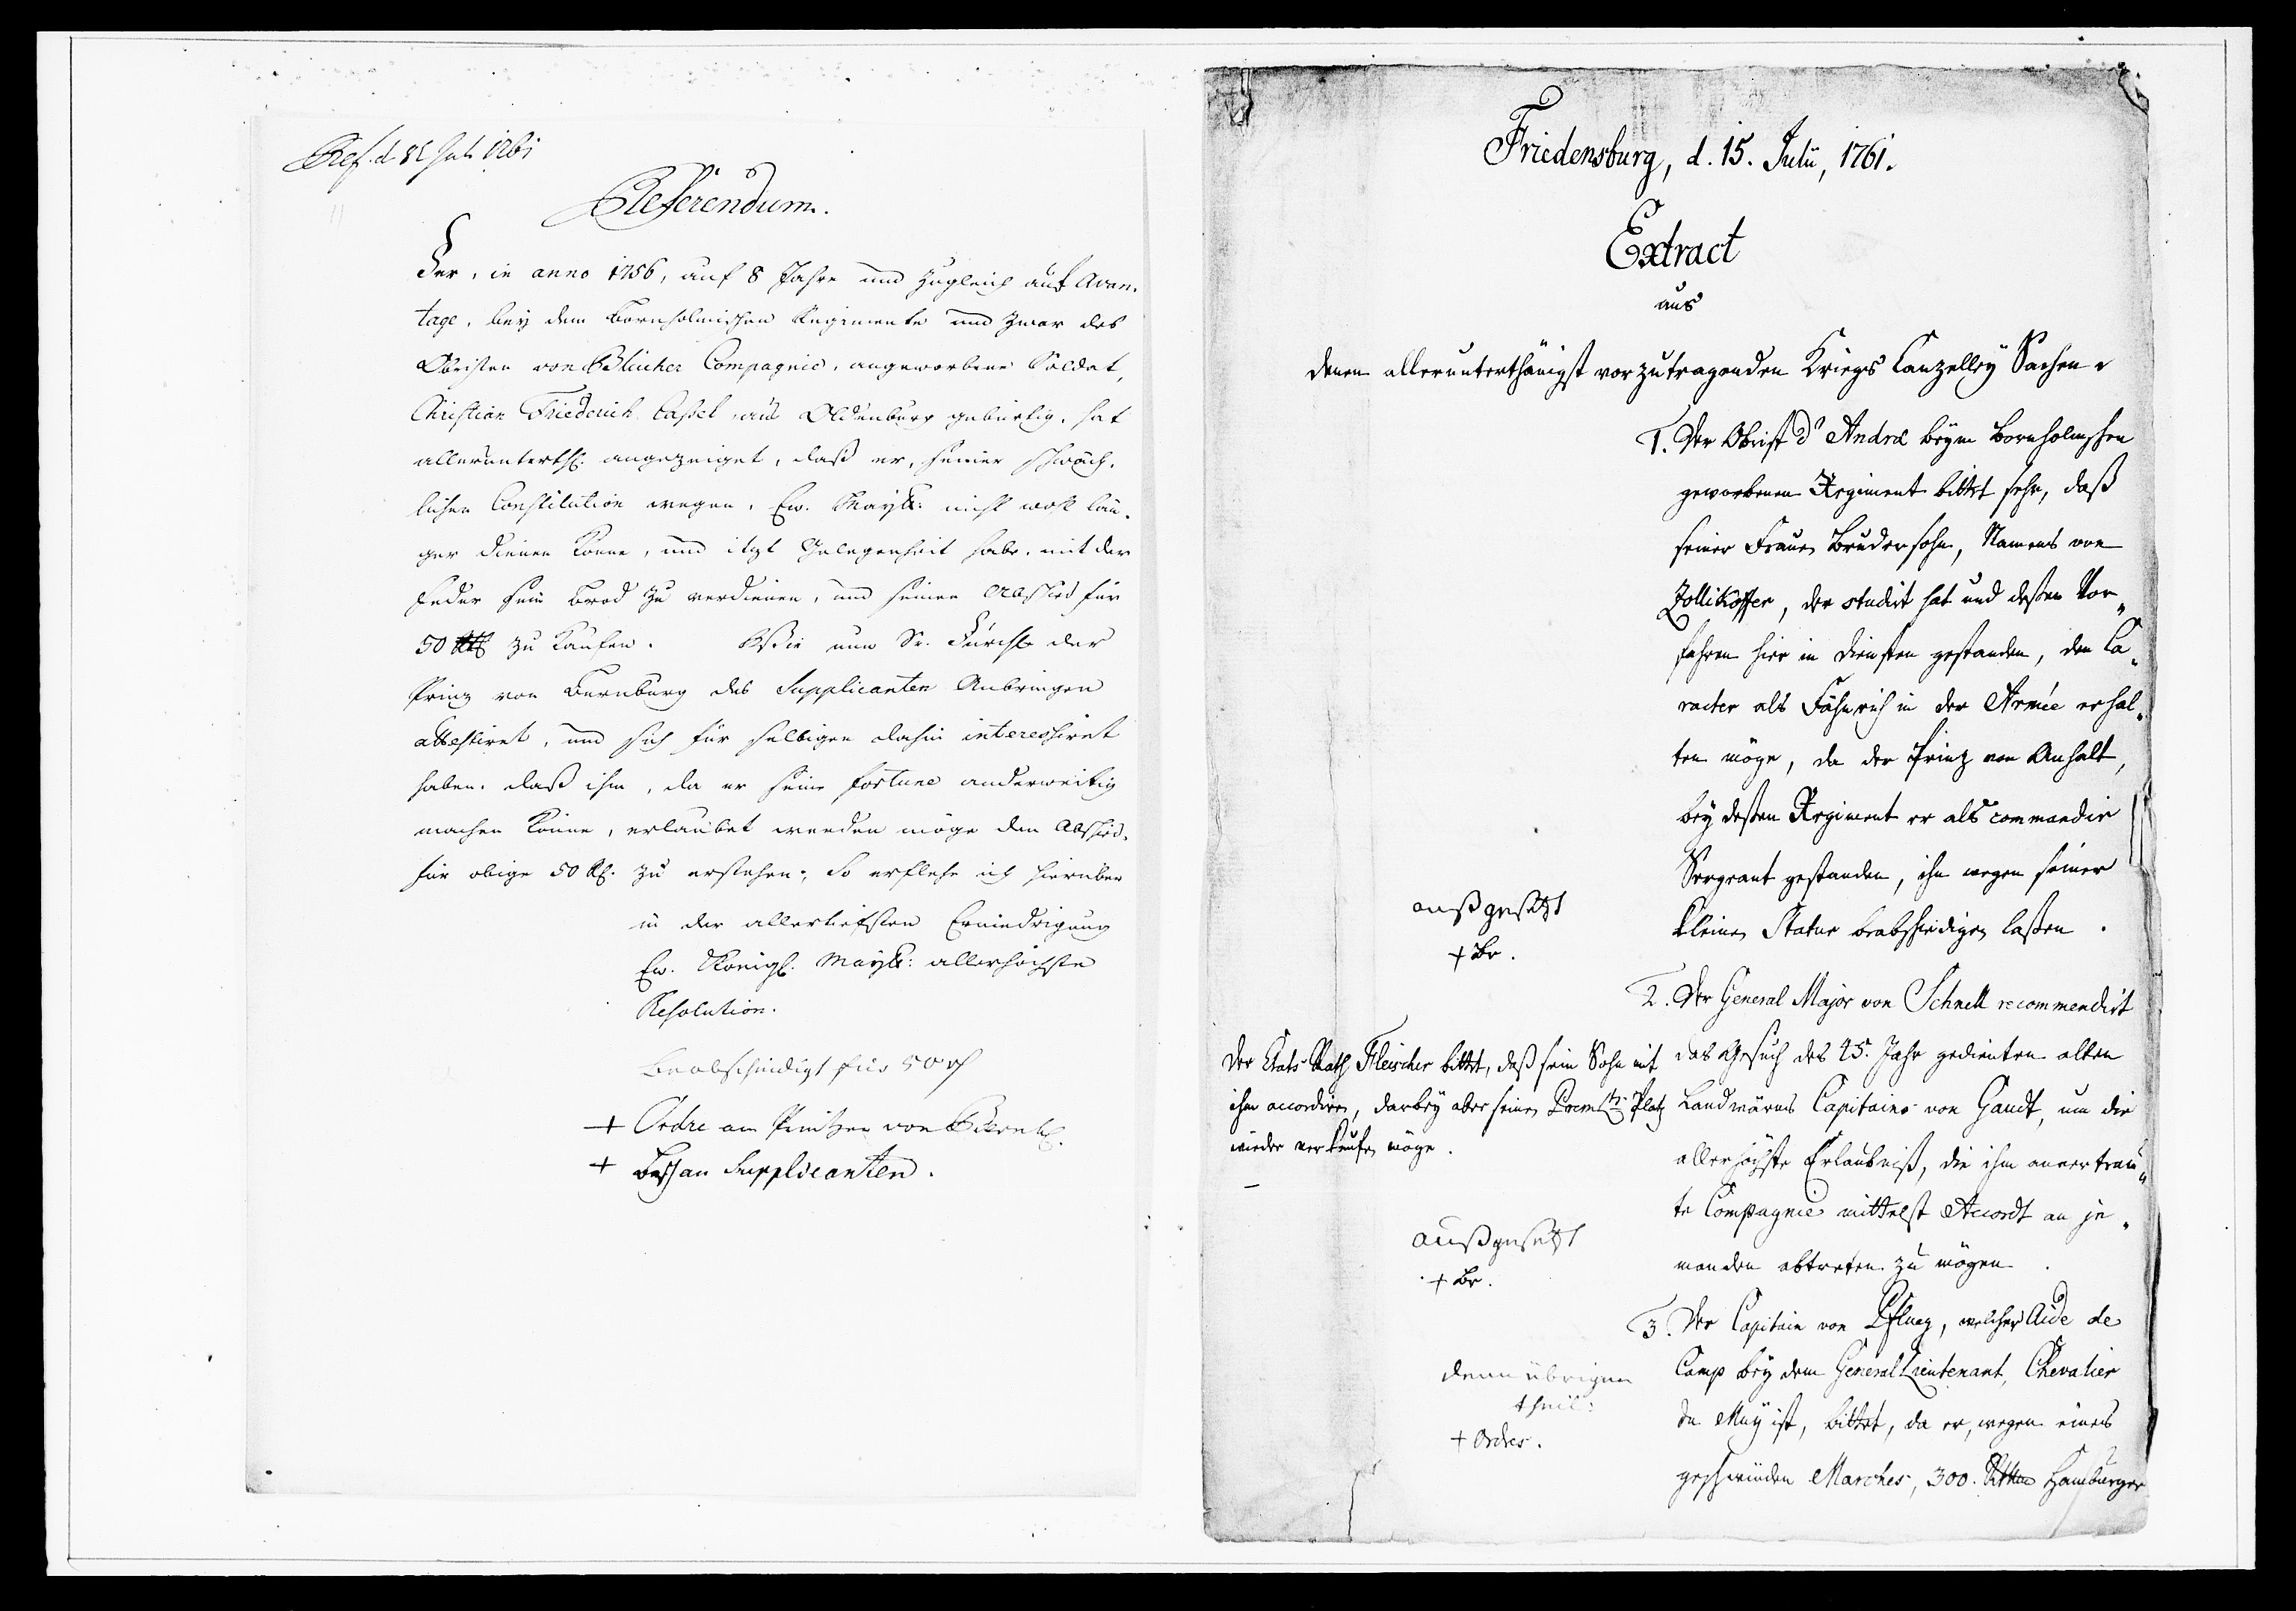 Ref. d Jul. 1761
Referendum.
Der, in anno 1756, auf 8 Jahre und zugleich auf Avan-
tage, bey dem Bornholmischen Regimente und zwar des
Obristen von Blücher Compagnie, angeworbene Soldat,
Christian Friederich Cassel, aus Oldenburg gebürtig, hat
allerunterth. angezeiget, daß er, seiner schwäch-
lichen Constitution wegen, Ew. Mayt: nicht wohl län-
ger dienen könne, und itzt Gelegenheit habe, mit der
Feder sein Brod zu verdienen, und seinen Abschied für
50 Rth zu kaufen. Wie nun Sr. Durchl. der
Prinz von Bernburg des Supplicanten Anbringen
attestiret, und sich für selbigen dahin interessiret
haben, daß ihm, da er seine fortune anderweitig
machen könne, erlaubet werden möge den Abschied
für obige 50 R. zu erstehen; So erflehe ich hierüber
in der allertiefsten Erniedrigung
Ew. Königl. Mayt: allerhöchste
Resolution.
Beabscheidigt für 50 r
+ Ordre am Printzen von Bernb.
+ an Supplicanten.
Friedensburg, d. 15. Julii, 1761.
Extract
aus
denen allerunterthänigst vorzutragenden Kriegs Canzelley Sachen
1. Der Obrist d'André beym Bornholmschen
geworbenen Regiment bittet sehr, daß
seiner Frauen Brudersohn, Namens von
Zollikoffer, der studirt hat und deßen Vor-
fahren hier in Diensten gestanden, den Ca-
racter als Fähnrich in der Armée erhal-
ten möge, da der Prinz von Anhalt,
bey deßen Regiment er als commandir
Sergeant gestanden, ihn wegen seiner
kleinen Statur beabschiedigen laßen.
außgesetzt
+ Br.
2. Der General Major von Schnell recommendirt
das Gesuch des 45. Jahr gedienten alten
Landwärns Capitains von Gaudt, um die
allerhöchste Erlaubniß, die ihm anvertrau-
te Compagnie mittelst Accordt an je-
manden abtreten zu mögen.
Der Etats Rath Fleischer bittet, daß sein Sohn mit
ihm accordiren, darbey aber seinen Prem. Lt. Platz
wieder verkaufen möge.
außgesetzt
+ Br.
3. Der Capitain von Pflueg, welcher Aide de
Camp bey dem General Lieutenant, Chevalier
du Muy ist, bittet, da er, wegen eines
geschwinden Marches, 300. Rthlr Hamburger
denn übrigen
theil:
+ Ordres.